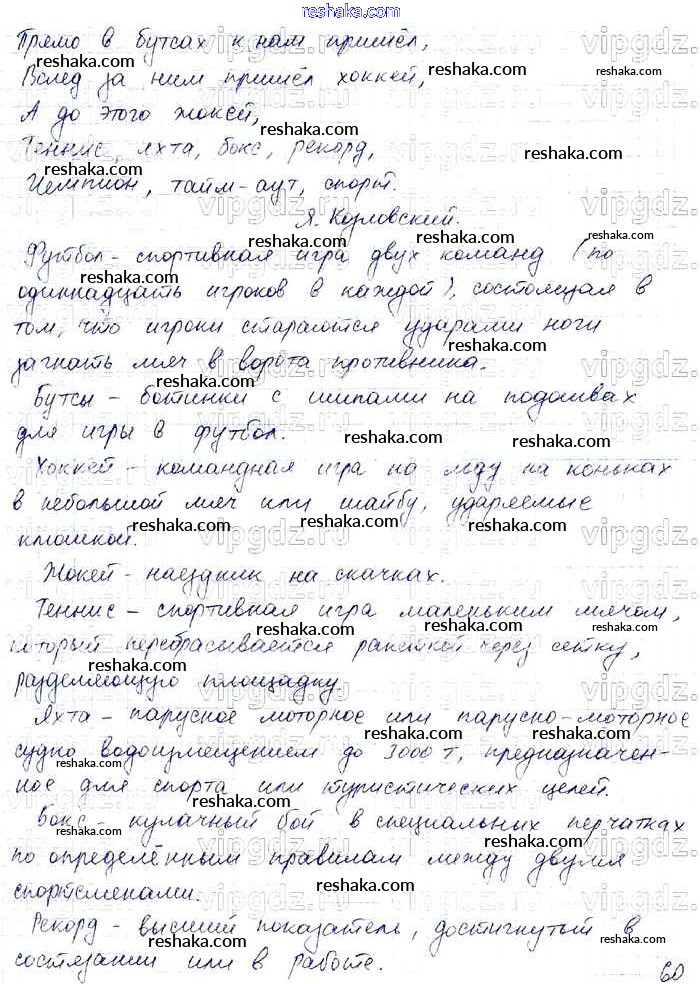 reshaka.com
Прямо в бутсах к нам пришёл,
Вслед за ним пришёл хоккей,
А до этого жокей,
Теннис, яхта, бокс, рекорд,
Чемпион, тайм-аут, спорт.
Я. Козловский.
Футбол - спортивная игра двух команд (по
одиннадцать игроков в каждой), состоящая в
том, что игроки стараются ударами ноги
загнать мяч в ворота противника.
Бутсы - ботинки с шипами на подошвах
для игры в футбол.
Хоккей - командная игра на льду на коньках
в небольшой мяч или шайбу, ударяемые
клюшкой.
Жокей - наездник на скачках.
Теннис - спортивная игра маленьким мячом,
который перебрасывается ракеткой через сетку,
разделяющую площадку.
Яхта - парусное моторное или парусно-моторное
судно водоизмещением до 3000 т, предназначен-
ное для спорта или туристических целей.
Бокс - кулачный бой в специальных перчатках
по определённым правилам между двумя
спортсменами.
Рекорд - высший показатель, достигнутый в
состязании или в работе.
60